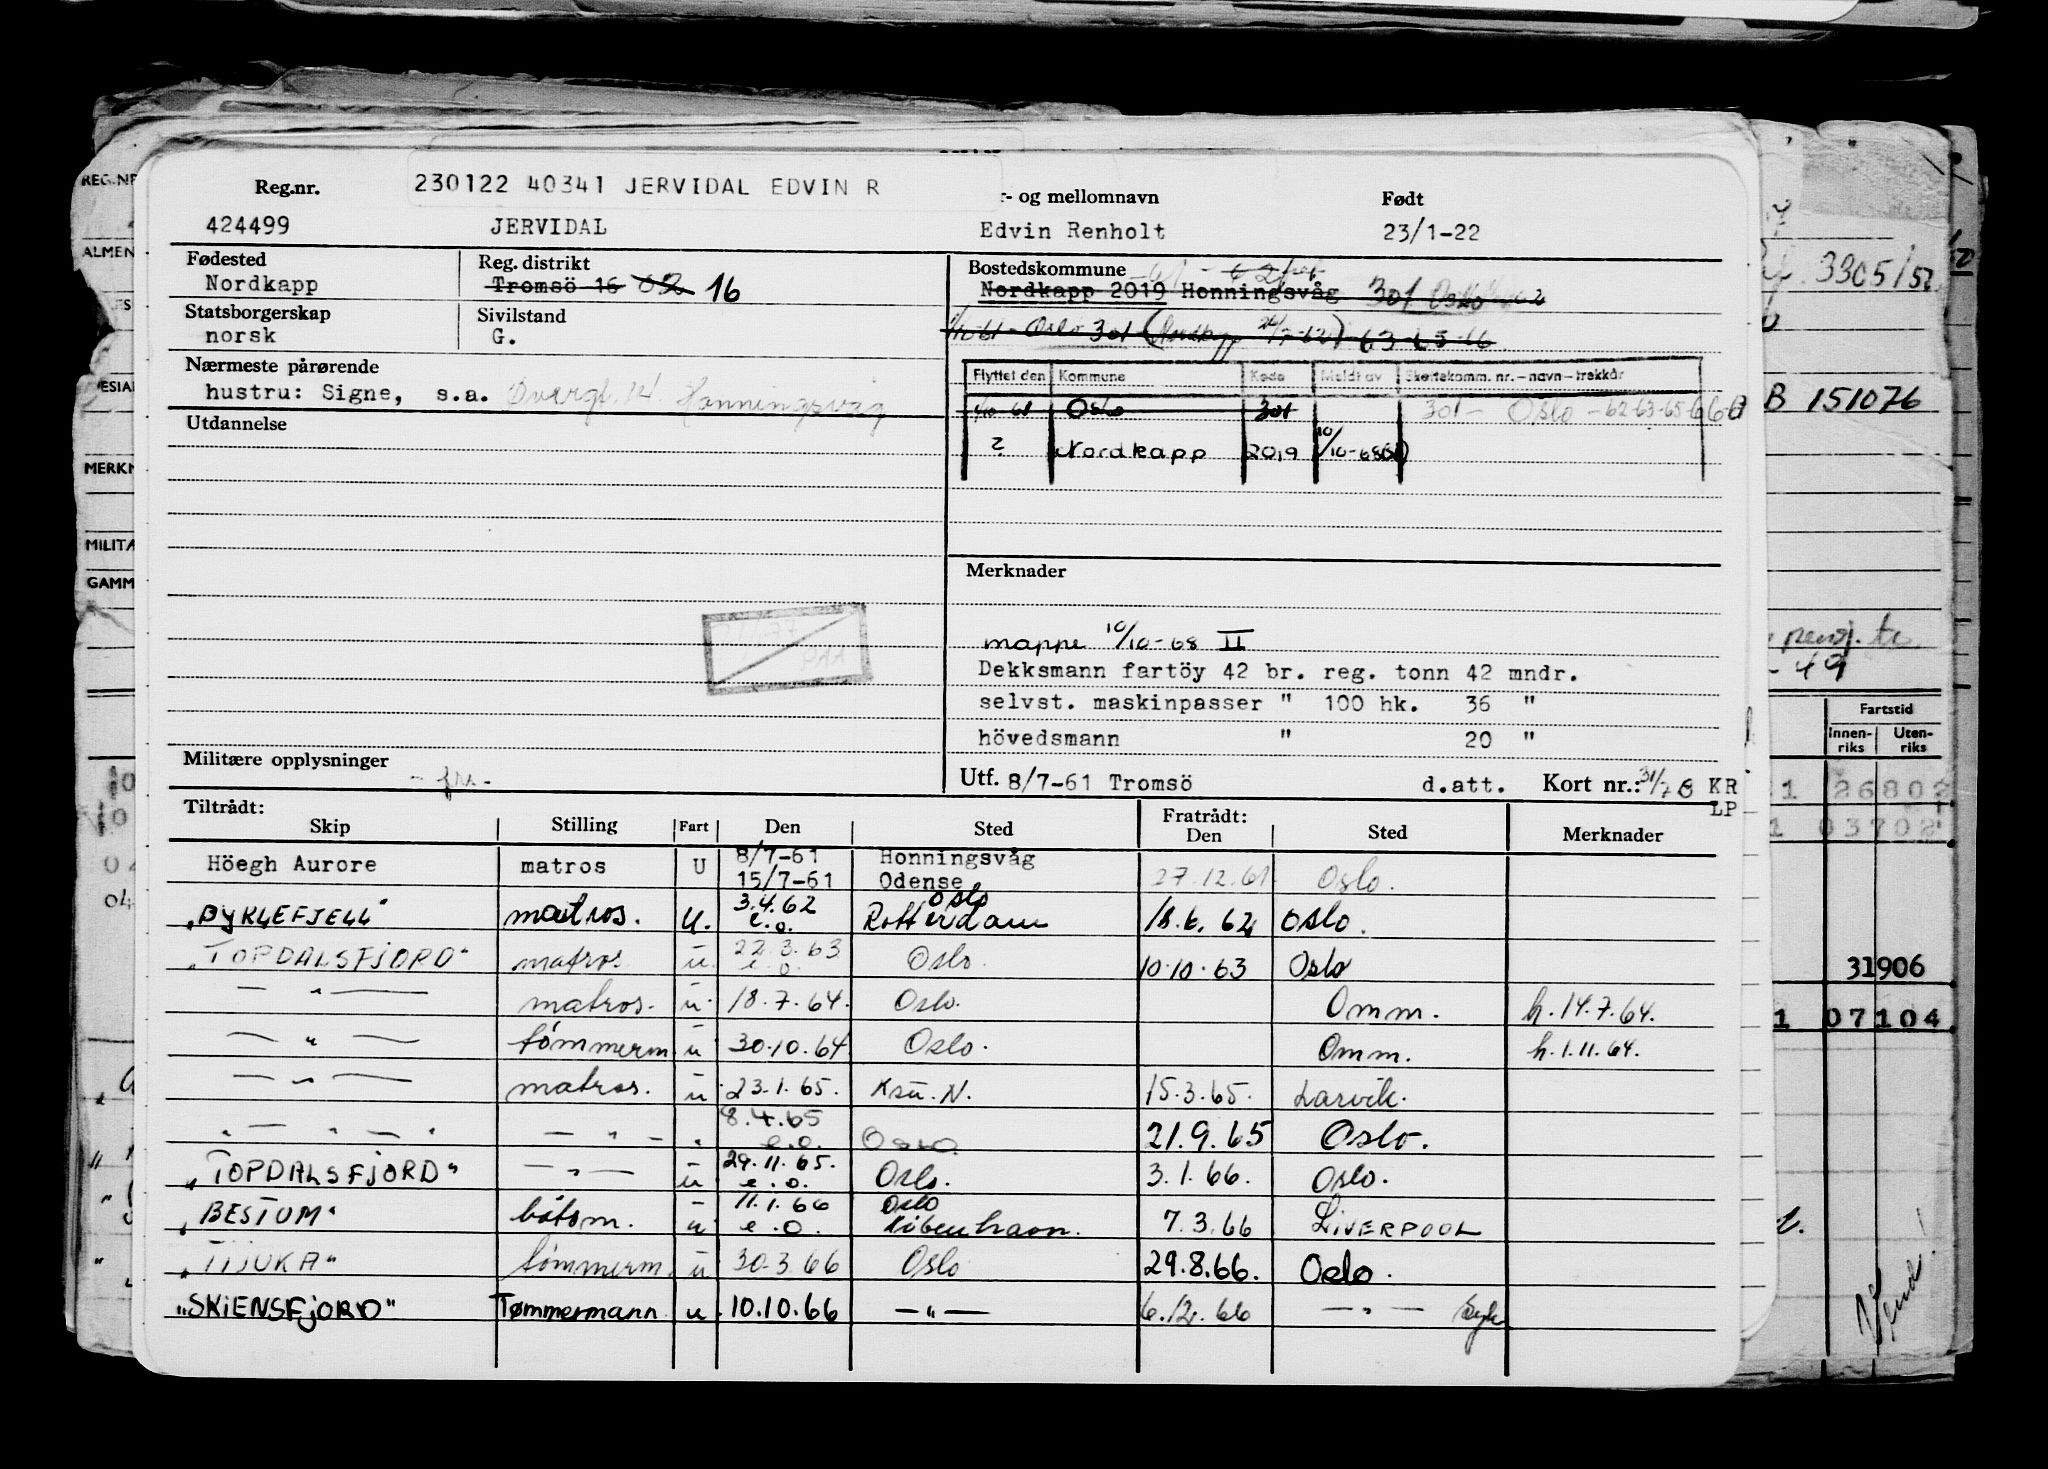 Reg.nr. 230122 40341 JERVIDAL EDVIN R - og mellomnavn Født
424499 JERVIDAL Edvin Renholt 23/1-22
Fødested Reg. distrikt Bostedskommune
Nordkapp Tromsö 16 02 16 Nordkapp 2019 Honningsvåg 301 Oslo
Statsborgerskap Sivilstand
norsk G. Oslo 301
Nærmeste pårørende
hustru: Signe, s.a. Honningsvåg
Flyttet den Kommune Kode Meldt av Skattekomm. nr.-navn-trekkår
1/10-61 Oslo 301 301- Oslo -62-63-65-66
2 Nordkapp 2019 10/10-68
Utdannelse
Merknader
mappe 10/10-68 II
Dekksmann fartöy 42 br. reg. tonn 42 mndr.
selvst. maskinpasser " 100 hk. 36 "
hövedsmann " 20 "
Militære opplysninger
Utf. 8/7-61 Tromsö d.att. Kort nr.: KR
LP
Tiltrådt: Fratrådt:
Skip Stilling Fart Den Sted Den Sted Merknader
Höegh Aurore matros U 8/7-61 Honningsvåg
15/7-61 Odense 27.12.61 Oslo.
"BYKLEFJELL" matros. u. 3.4.62 e.o. Oslo Rotterdam 18.6.62 Oslo.
"TOPDALSFJORD" matros u. 22.3.63 e.o. Oslo. 10.10.63 Oslo
— " — matros. u. 18.7.64. Oslo. Omm. h.14.7.64.
— " — tømmerm. u 30.10.64 Oslo. Omm. h.1.11.64.
— " — matros. u 23.1.65. Krsu.N. 15.3.65. Larvik.
" — " — " — " — " 8.4.65 e.o. Oslo 21.9.65 Oslo.
"TOPDALSFJORD" — " — u 29.11.65. e.o. Oslo. 3.1.66. Oslo.
"BESTUM" båtsm. u 11.1.66 e.o. Oslo København. 7.3.66 LIVERPOOL
"TIJUKA" tømmerm. u 30.3.66 Oslo 29.8.66. Oslo.
"SKIENSFJORD" Tømmermann u. 10.10.66 — " — 6.12.66 — " — Syk
REG.NR
ALMEN
MERKN
MILITÆ
GAMM
3305/52
B 151076
- 49
Fartstid
Innen-riks Uten-riks
1 26802
1 03702
31906
1 07104
Vend!